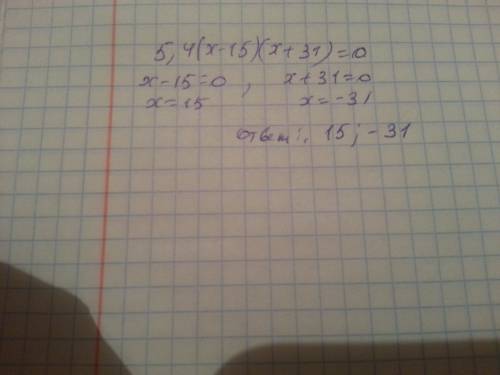 5,4(x-15)(x+31)=0
x-15=0 , x+31=0
x=15 x=-31
ответ: 15; -31